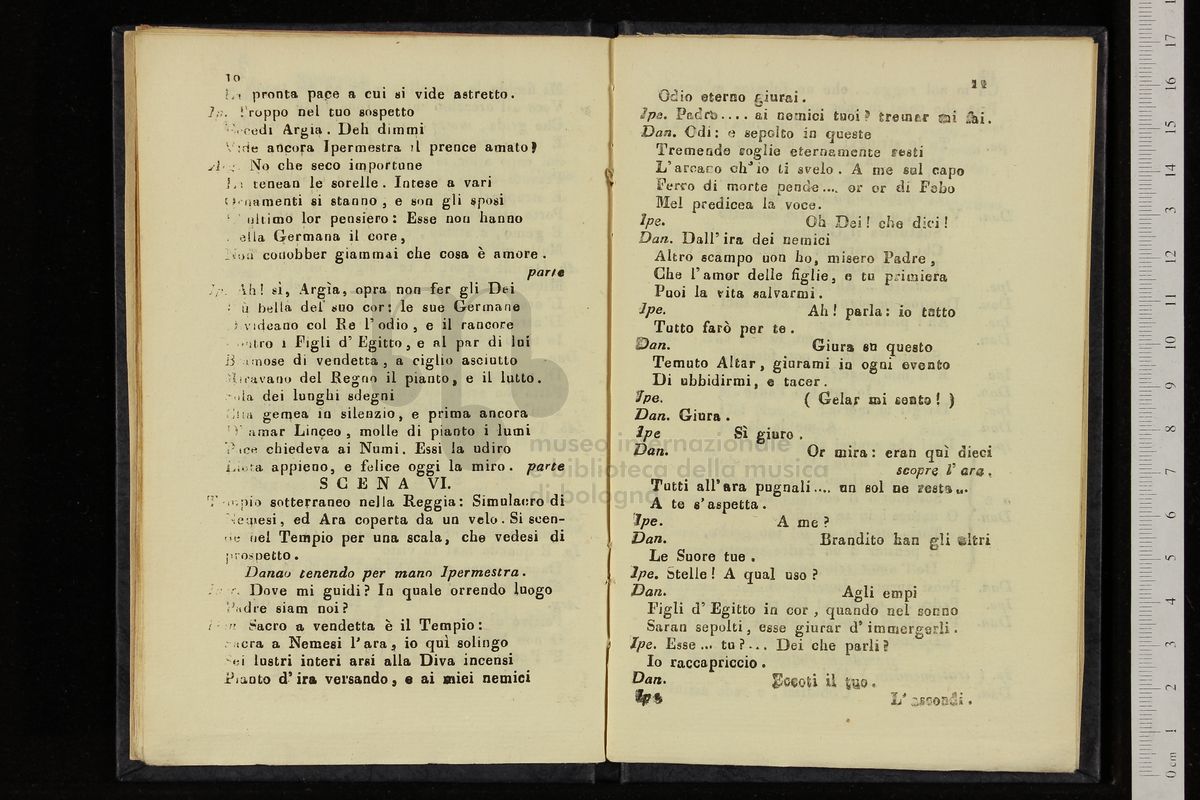 10
pronta pace a cui si vide astretto.
Troppo nel tuo sospetto
Argia. Deh dimmi
ancora Ipermestra il prence amato?
No che seco importune
tenean le sorelle. Intese a vari
Ornamenti si stanno, e son gli sposi
ultimo lor pensiero: Esse non hanno
ella Germana il core,
Non conobber giammai che cosa è amore.
parte
Ah! sì, Argìa, opra non fer gli Dei
bella del suo cor: le sue Germane
videano col Re l'odio, e il rancore
i Figli d'Egitto, e al par di lui
di vendetta, a ciglio asciutto
Miravano del Regno il pianto, e il lutto.
dei lunghi sdegni
gemea in silenzio, e prima ancora
amar Linceo, molle di pianto i lumi
Pace chiedeva ai Numi. Essi la udiro
Lieta appieno, e felice oggi la miro. parte
SCENA VI.
Tempio sotterraneo nella Reggia: Simulacro di
Nemesi, ed Ara coperta da un velo. Si scen-
de nel Tempio per una scala, che vedesi di
prospetto.
Danao tenendo per mano Ipermestra.
Dove mi guidi? In quale orrendo luogo
Padre siam noi?
Sacro a vendetta è il Tempio:
Sacra a Nemesi l'ara, io quì solingo
Sei lustri interi arsi alla Diva incensi
Pianto d'ira versando, e ai miei nemici
Odio eterno giurai.
Ipe. Padre.... ai nemici tuoi? tremar mi fai.
Dan. Odi: e sepolto in queste
Tremende soglie eternamente resti
L'arcano ch'io ti svelo. A me sul capo
Ferro di morte pende.... or or di Febo
Mel predicea la voce.
Ipe. Oh Dei! che dici!
Dan. Dall'ira dei nemici
Altro scampo non ho, misero Padre,
Che l'amor delle figlie, e tu primiera
Puoi la vita salvarmi.
Ipe. Ah! parla: io tutto
Tutto farò per te.
Dan. Giura su questo
Temuto Altar, giurami in ogni evento
Di ubbidirmi, e tacer.
Ipe. ( Gelar mi sento! )
Dan. Giura.
Ipe Sì giuro.
Dan. Or mira: eran quì dieci
scopre l'ara.
Tutti all'ara pugnali.... un sol ne resta...
A te s'aspetta.
Ipe. A me?
Dan. Brandito han gli altri
Le Suore tue.
Ipe. Stelle! A qual uso?
Dan. Agli empi
Figli d'Egitto in cor, quando nel sonno
Saran sepolti, esse giurar d'immergerli.
Ipe. Esse... tu?... Dei che parli?
Io raccapriccio.
Dan. Eccoti il tuo.
Ipe L'ascondi.
museo internazionale
e biblioteca della musica
di bologna
0 cm 1 2 3 4 5 6 7 8 9 10 11 12 13 14 15 16 17